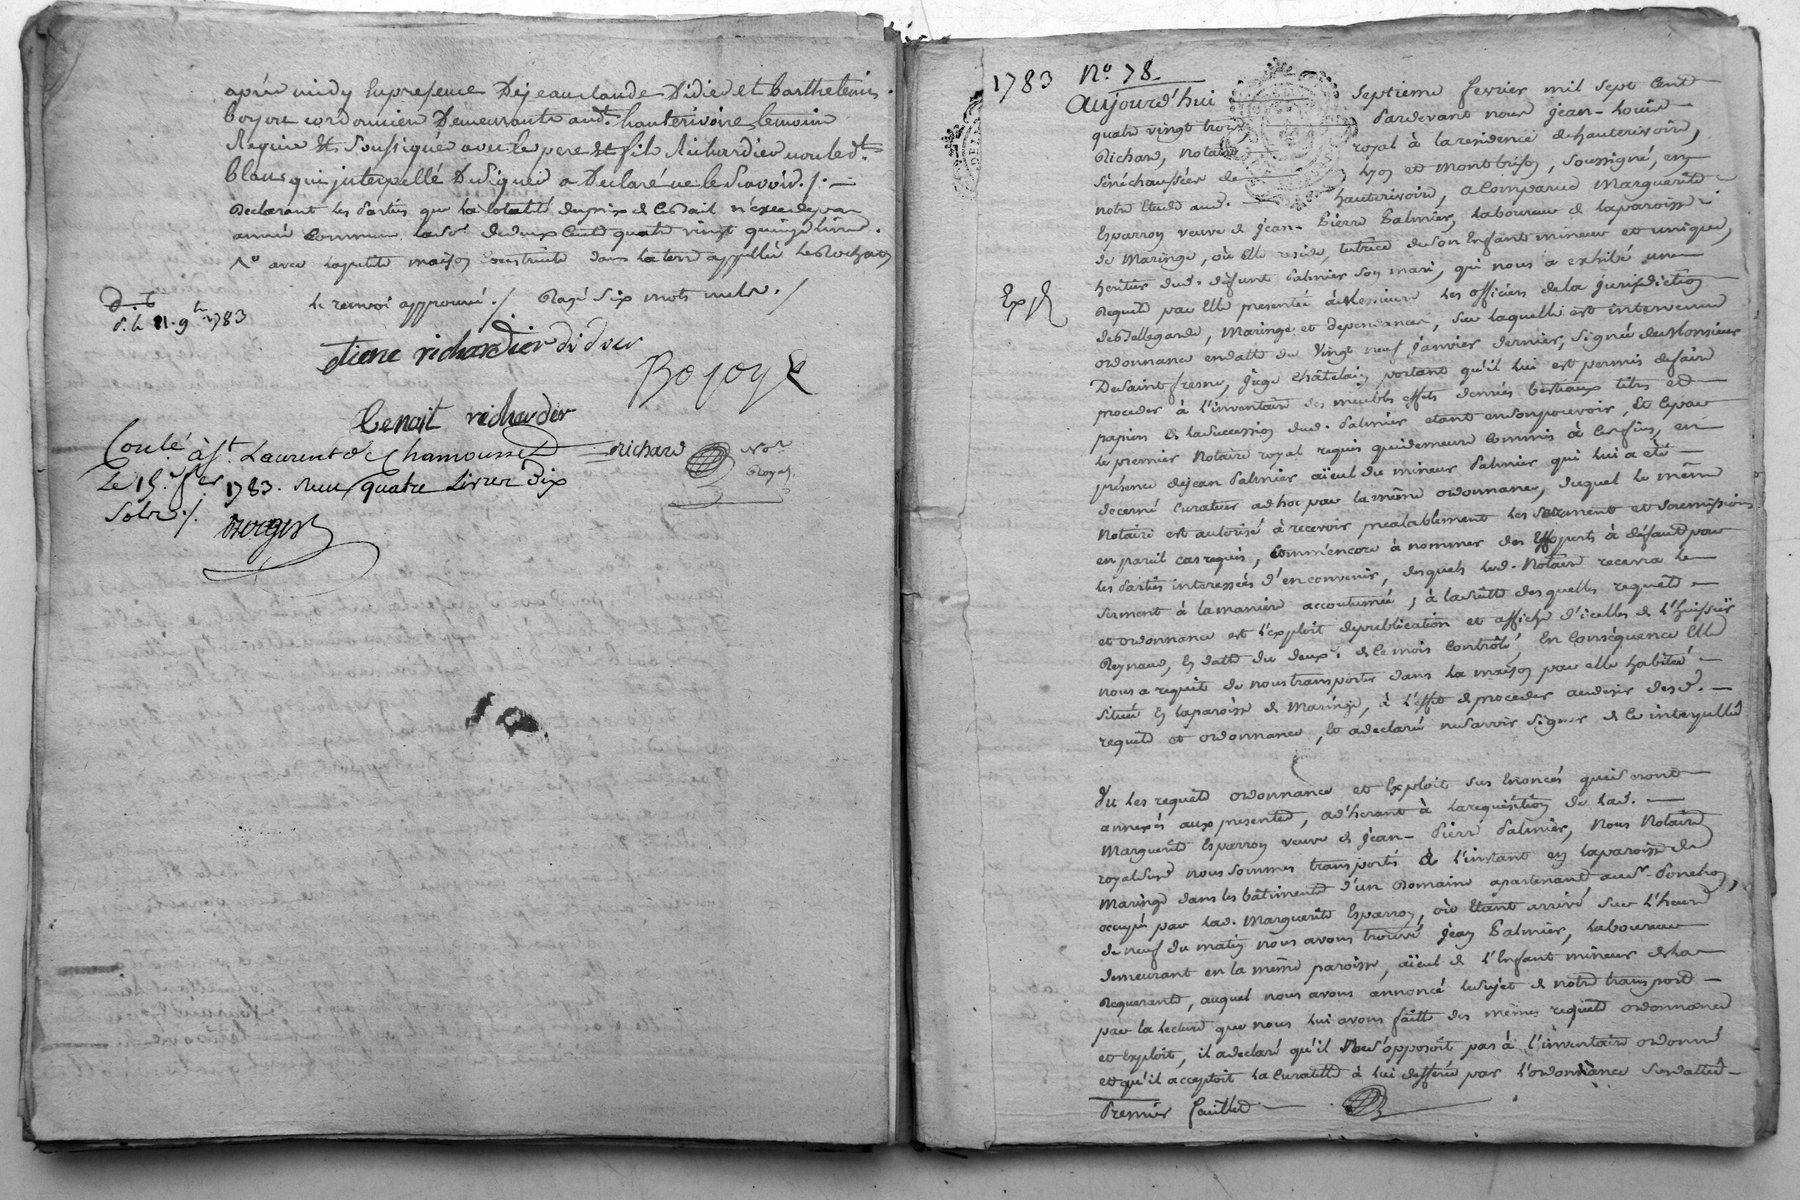 après midy En presence De jean claude Didier et barthelemy
boyon cordonnier Demeurants aud.t hauterivoire temoins
Requis Et Soussignés avec le pere Et fils Richardier non led.t
blanc qui interpellé De Signer a Declaré ne le Scavoir ./. —
Declarant les parties que la totalité du prix de ce bail n'excede pas
année commune la So.e de deux Cent quatre vingt quinze livres.
avec la petite maison construite dans la terre appellée
le renvoi approuvé ./ Rayé Six mots nuls ./
etiene richardier didier
Boyon
Benoit richardier
richard No.re Royal
Conlé à S.t Laurent de Chamousset
Le 15. f.er 1783. Reçu quatre livres dix
Sols ./.
D. E.
p. le 11. 9.bre 1783
1783 N.o 78
Aujourd'hui septieme fevrier mil sept Cent
quatre vingt trois Pardevant nous Jean-Louis
Richard, Notaire royal à la residence de hauterivoire,
Sénéchaussées de Lyon et Montbrison, soussigné, en
notre Etude aud. hauterivoire, a Comparue Marguerite
Esparron veuve de Jean-Pierre Palmier, laboureur de la paroisse
de Maringe, où Elle reside, tutrice de son Enfant mineur et unique,
heritier dud. defunt Palmier son mari, qui nous a exhibé une
Exp.
Requete par Elle presentée à Messieurs les officiers de la Jurisdiction
de Bellegarde, Maringe et dependances, sur laquelle est intervenue
ordonnance en datte du Vingt neuf Janvier dernier, signée de Monsieur
De Saint fresne, Juge Châtelain, portant qu'il lui est permis de faire
proceder à l'inventaire des meubles effets denrées bestiaux titres et
papiers de la succession dud. Palmier etant en son pouvoir, Et ce par
le premier Notaire royal requis qui demeure Commis à Ces fins, en
présence de jean Palmier aïeul du mineur Palmier qui lui a été
decerné Curateur ad hoc par la même ordonnance, duquel le même
Notaire est autorisé à recevoir prealablement les serment et soumission
en pareil cas requis, Comm'encore à nommer des Experts à défaut par
les parties interessées d'en convenir, desquels led. Notaire recevra le
serment à la manière accoutumée ; à la suitte desquelles requete
et ordonnance est l'exploit de publication et affiche d'icelles de l'huissier
Reynaud, En datte du deux.e de Ce mois Controlé, En Conséquence Elle
nous a requit de nous transporter dans la maison par elle habitée
située En la paroisse de Maringe, à l'effet de proceder au desir desd.
requete et ordonnance, Et a declaré ne savoir signer de Ce interpellée
Vu les requete ordonnance et Exploit sus Enoncés qui seront
annexés aux presentes, adhérant à la requisition de lad.
Marguerite Esparron veuve de Jean-Pierre Palmier, Nous Notaire
royal susd. nous sommes transportés à l'instant en la paroisse de
Maringe dans les bâtiments d'un Domaine apartenant au S.r Ponchon,
occupés par lad. Marguerite Esparron, où Etant arrivé sur l'heure
de neuf du matin nous avons trouvé Jean Palmier, laboureur
demeurant en la même paroisse, aïeul de l'Enfant mineur de la
Requerante, auquel nous avons annoncé le sujet de notre transport
par la lecture que nous lui avons faitte des mêmes requete ordonnance
et Exploit, il a declaré qu'il ne s'opposoit pas à l'inventaire ordonné
et qu'il acceptoit la Curatelle à lui defférée par l'ordonnance susdattée
Premier feuillet